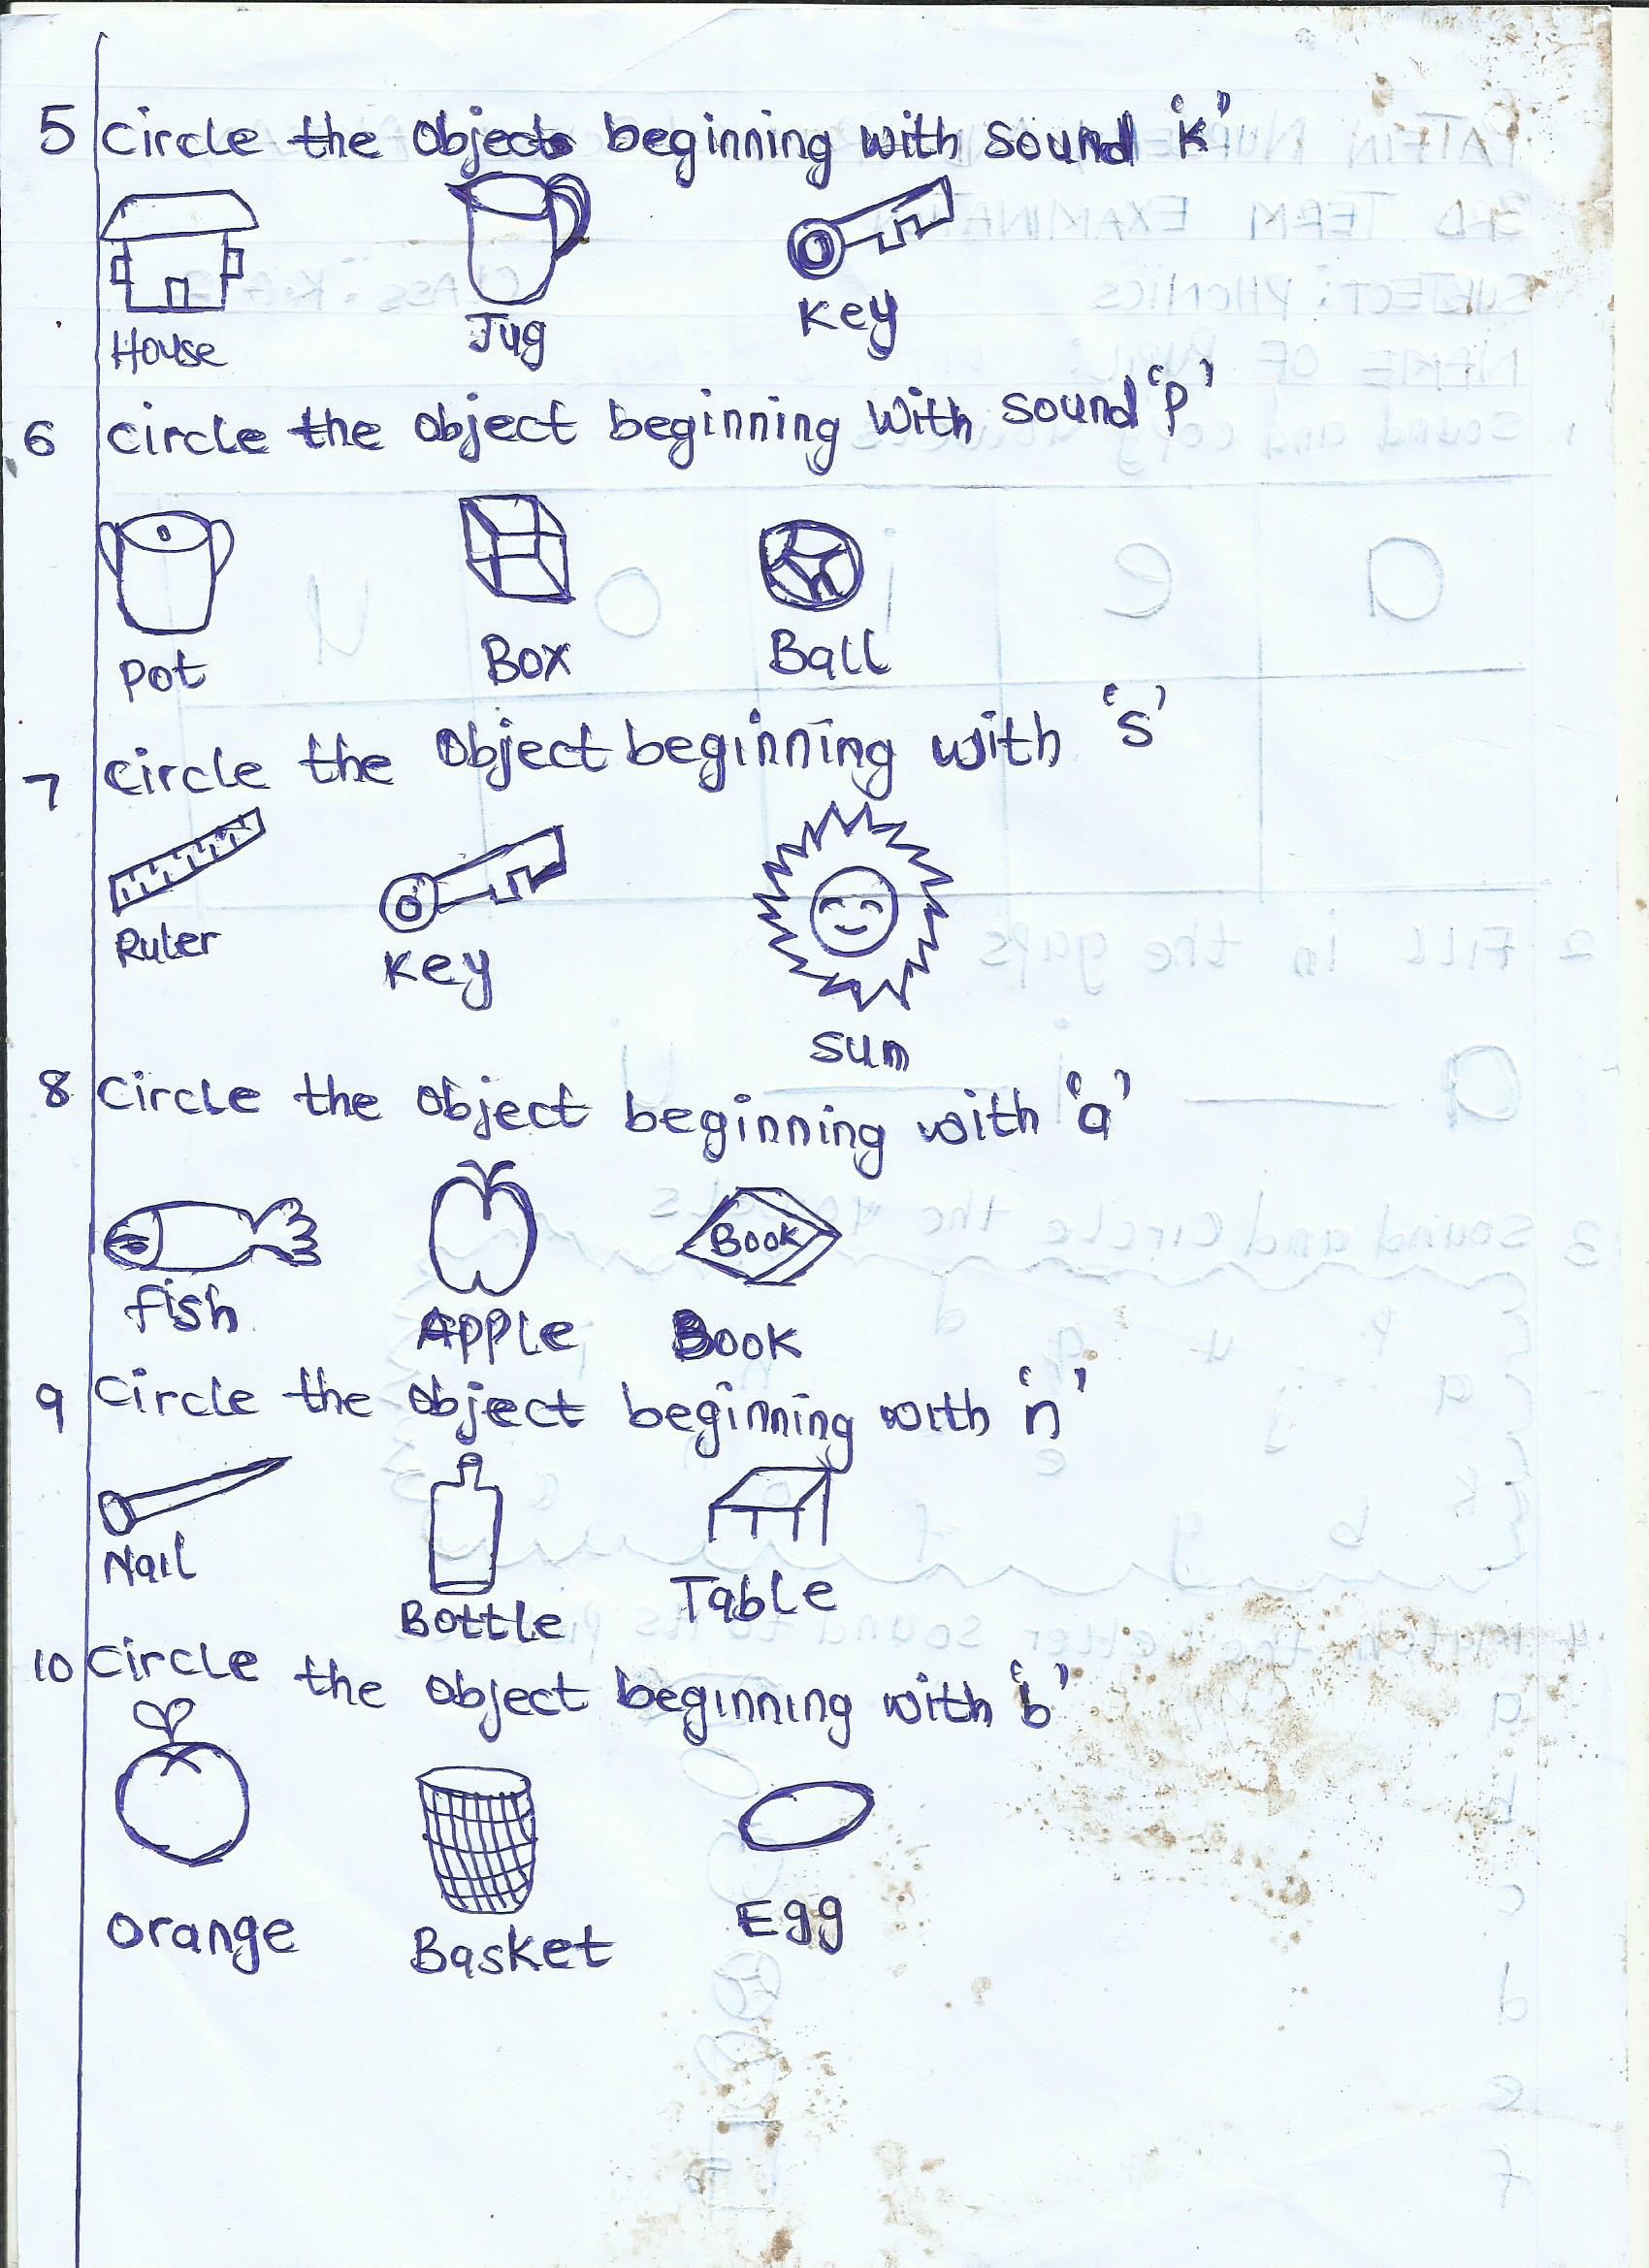 5 Circle the object beginning with sound 'k'
House Jug Key
6 circle the object beginning with sound 'p'
Pot Box Ball
7 circle the object beginning with 's'
Ruler Key sun
8 Circle the object beginning with 'a'
fish Apple Book Book
9 Circle the object beginning with 'n'
Nail Bottle Table
10 Circle the object beginning with 'b'
orange Basket Egg